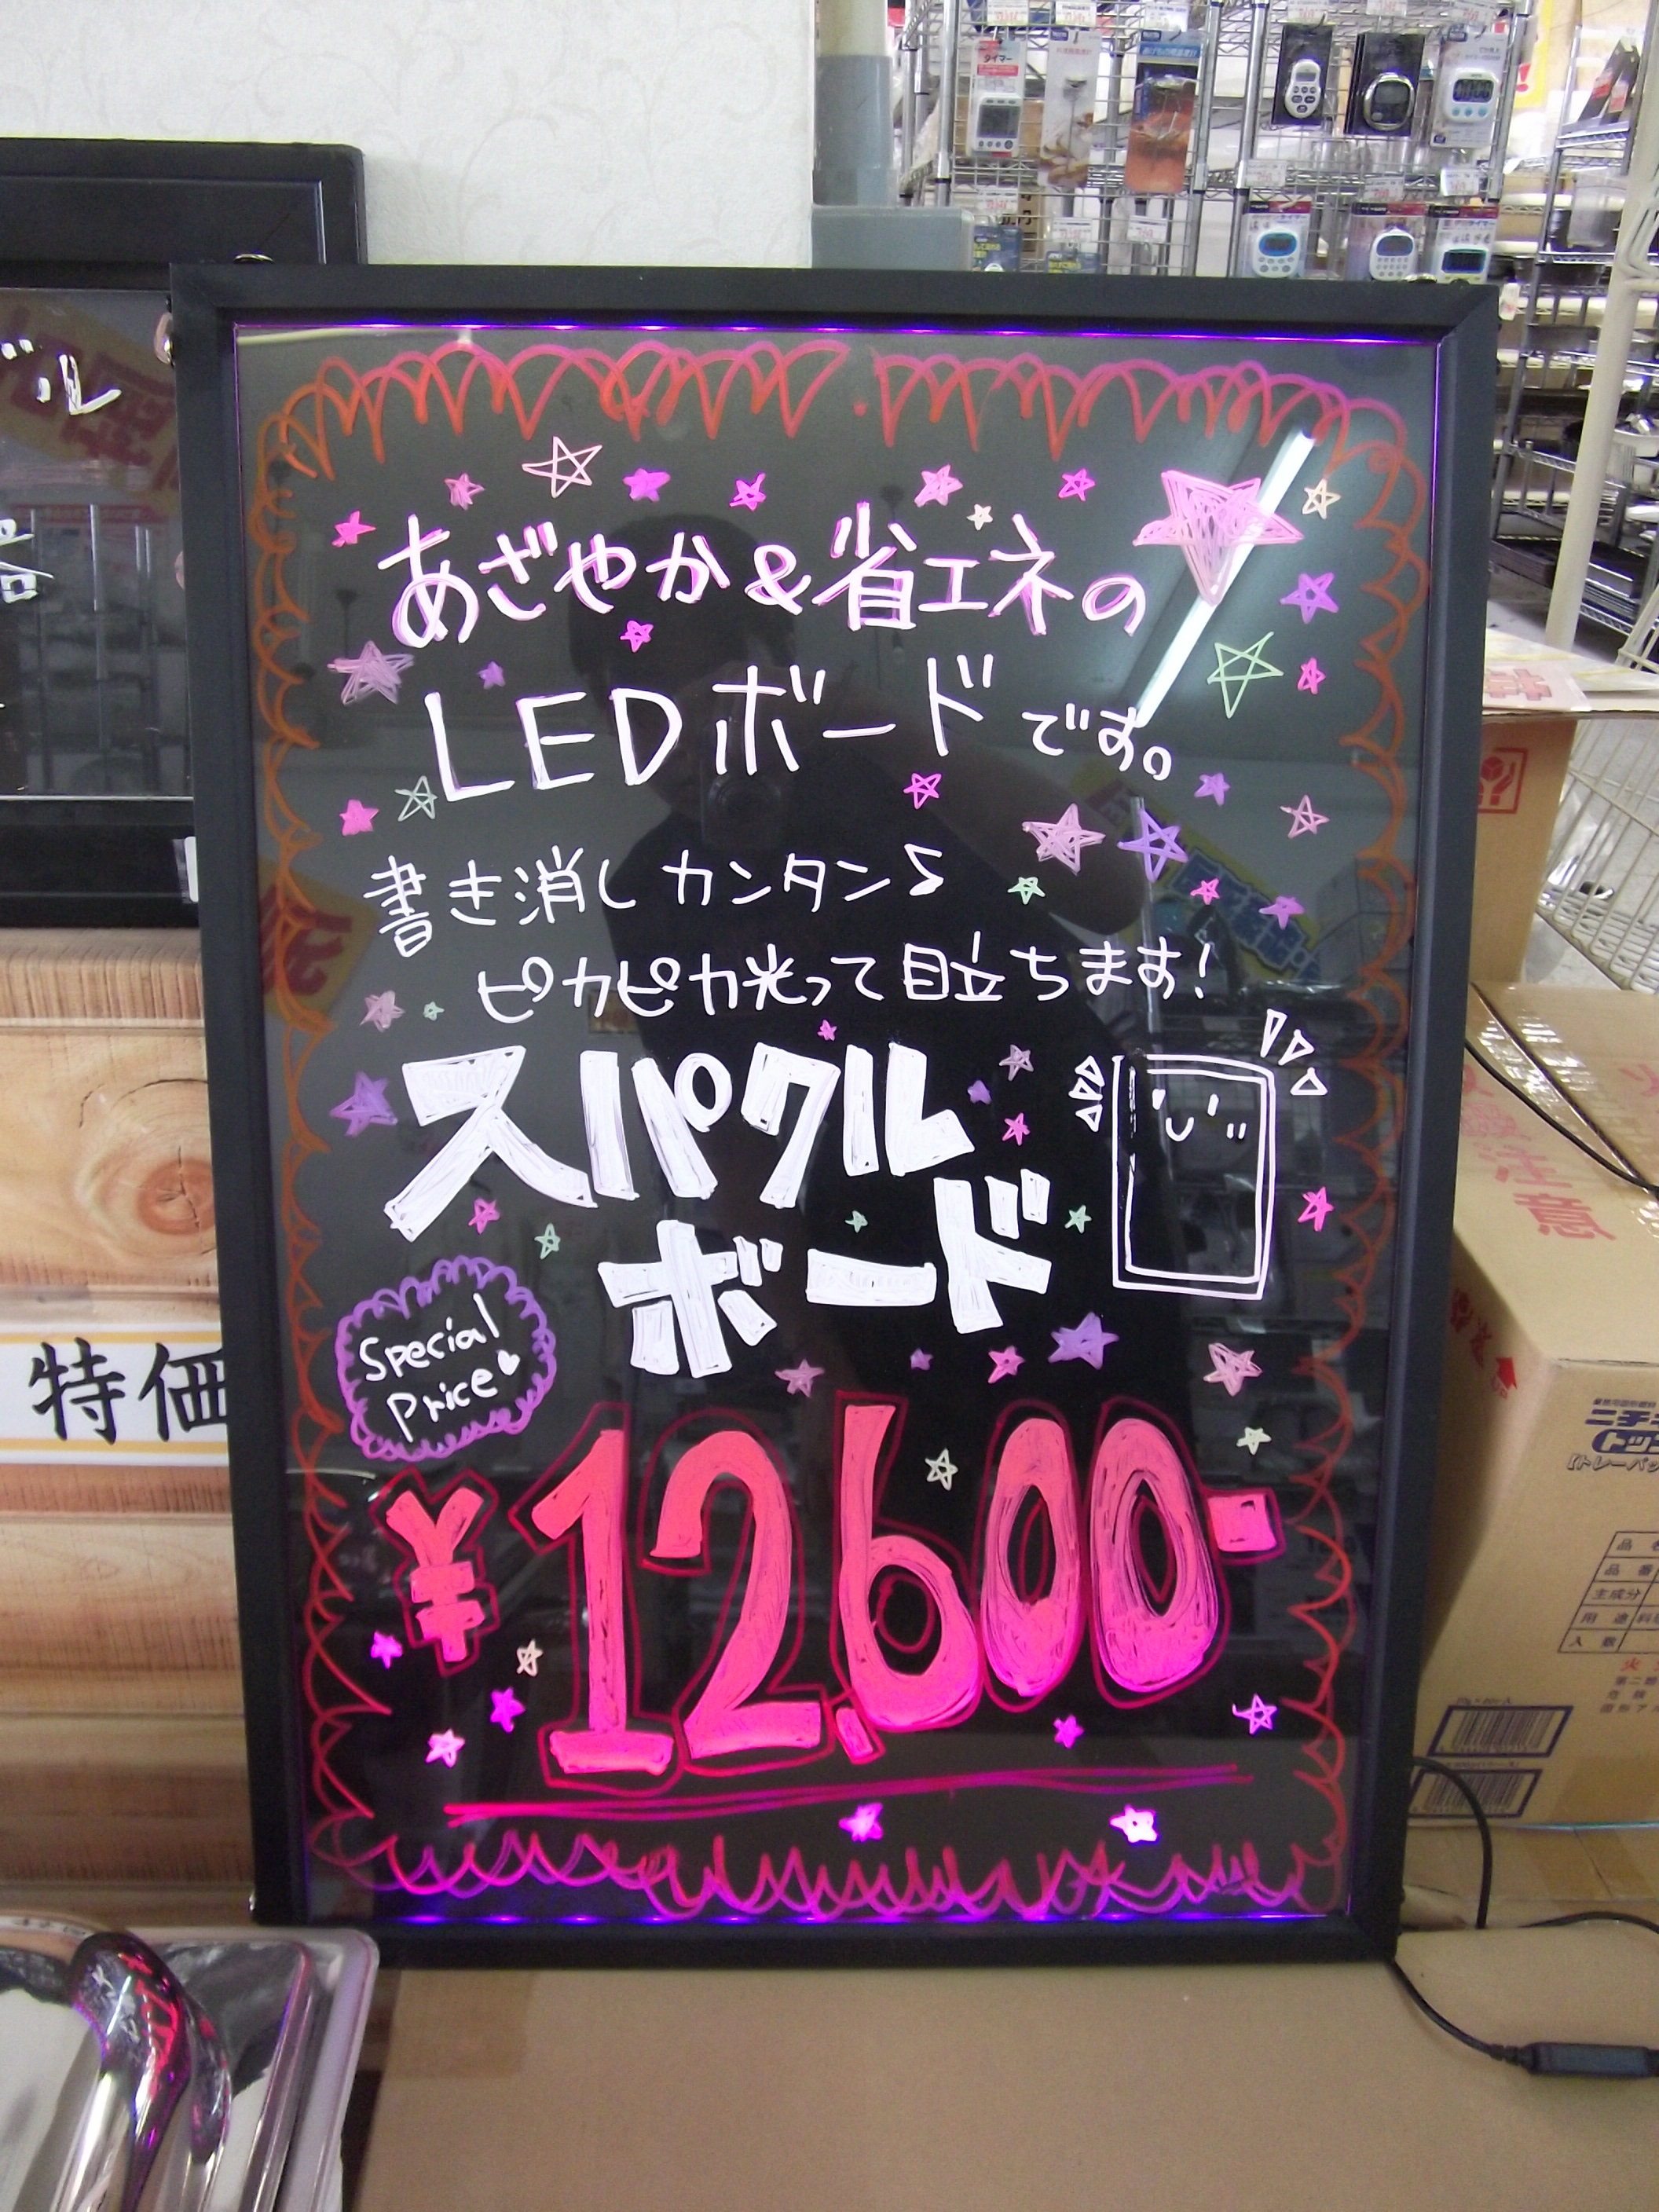 あざやか&省エネの
LEDボードです。
書き消しカンタン♪
ピカピカ光って目立ちます!
スパクル
ボード
Special
Price
¥12,600-
特価
注意
品番
主成分
用途
入数
タイマー